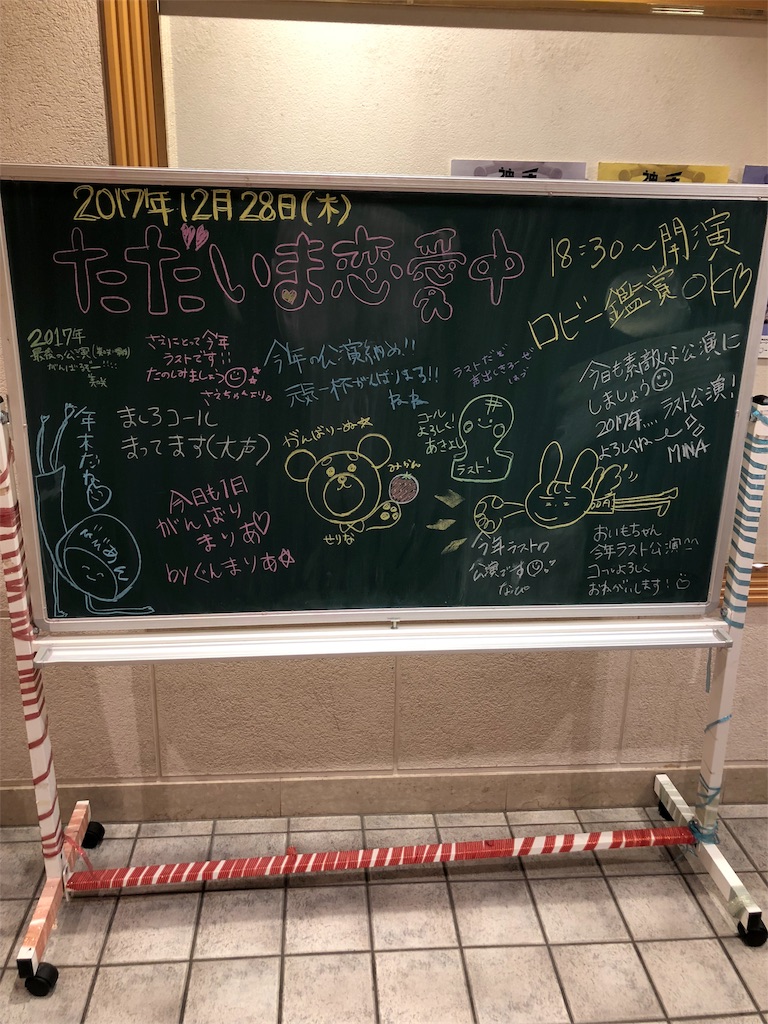 2017年12月28日(木)
ただいま恋愛中
18:30〜開演
ロビー鑑賞OK♡
2017年
最後の公演
がんばるぞー
さえにとって今年
ラストです!!
たのしみましょう
さえちゃんより。
今年の公演納め!!
ラストだぞ
声出しきろーぜ
今日も素敵な公演に
しましょう
2017年... ラスト公演!
よろしくね〜
MINA
年末だな
ましろコール
まってます(大声)
がんばりーぬ☆
みかん
せりな
コール
よろしく!
あきよし
ラスト!
今日も1日
がんばり
まりあ♡
byぐんまりあ☆
今年ラストの
公演です
なぴ
おいもちゃん
今年ラスト公演^^
コールよろしく
おねがいします!